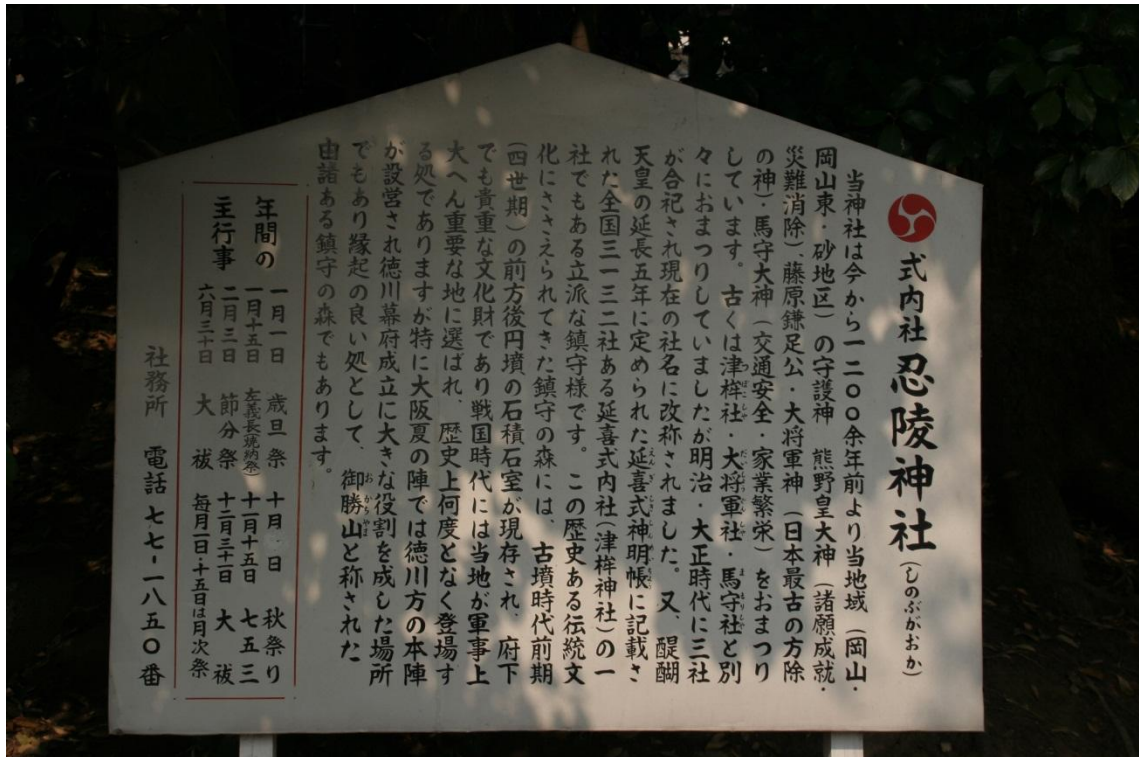 式内社 忍陵神社(しのぶがおか)
当神社は今から一二〇〇余年前より当地域(岡山・
岡山東・砂地区)の守護神 熊野皇大神(諸願成就・
災難消除)、藤原鎌足公・大将軍神(日本最古の方除
の神)・馬守大神(交通安全・家業繁栄)をおまつり
しています。古くは津桙社・大将軍社・馬守社と別
々におまつりしていましたが明治・大正時代に三社
が合祀され現在の社名に改称されました。又、醍醐
天皇の延長五年に定められた延喜式神明帳に記載さ
れた全国三一三二社ある延喜式内社(津桙神社)の一
社でもある立派な鎮守様です。この歴史ある伝統文
化にささえられてきた鎮守の森には、古墳時代前期
(四世期)の前方後円墳の石積石室が現存され、府下
でも貴重な文化財であり戦国時代には当地が軍事上
大へん重要な地に選ばれ、歴史上何度となく登場す
る処でありますが特に大阪夏の陣では徳川方の本陣
が設営され徳川幕府成立に大きな役割を成した場所
でもあり縁起の良い処として、御勝山と称された
由諸ある鎮守の森でもあります。
年間の
主行事
一月一日 歳旦祭 十月・日 秋祭り
一月十五日 左義長焼納祭) 十一月十五日 七五三
二月三日 節分祭 十二月三十一日 大祓
六月三十日 大祓 毎月一日・十五日は月次祭
社務所 電話 七七-一八五〇番